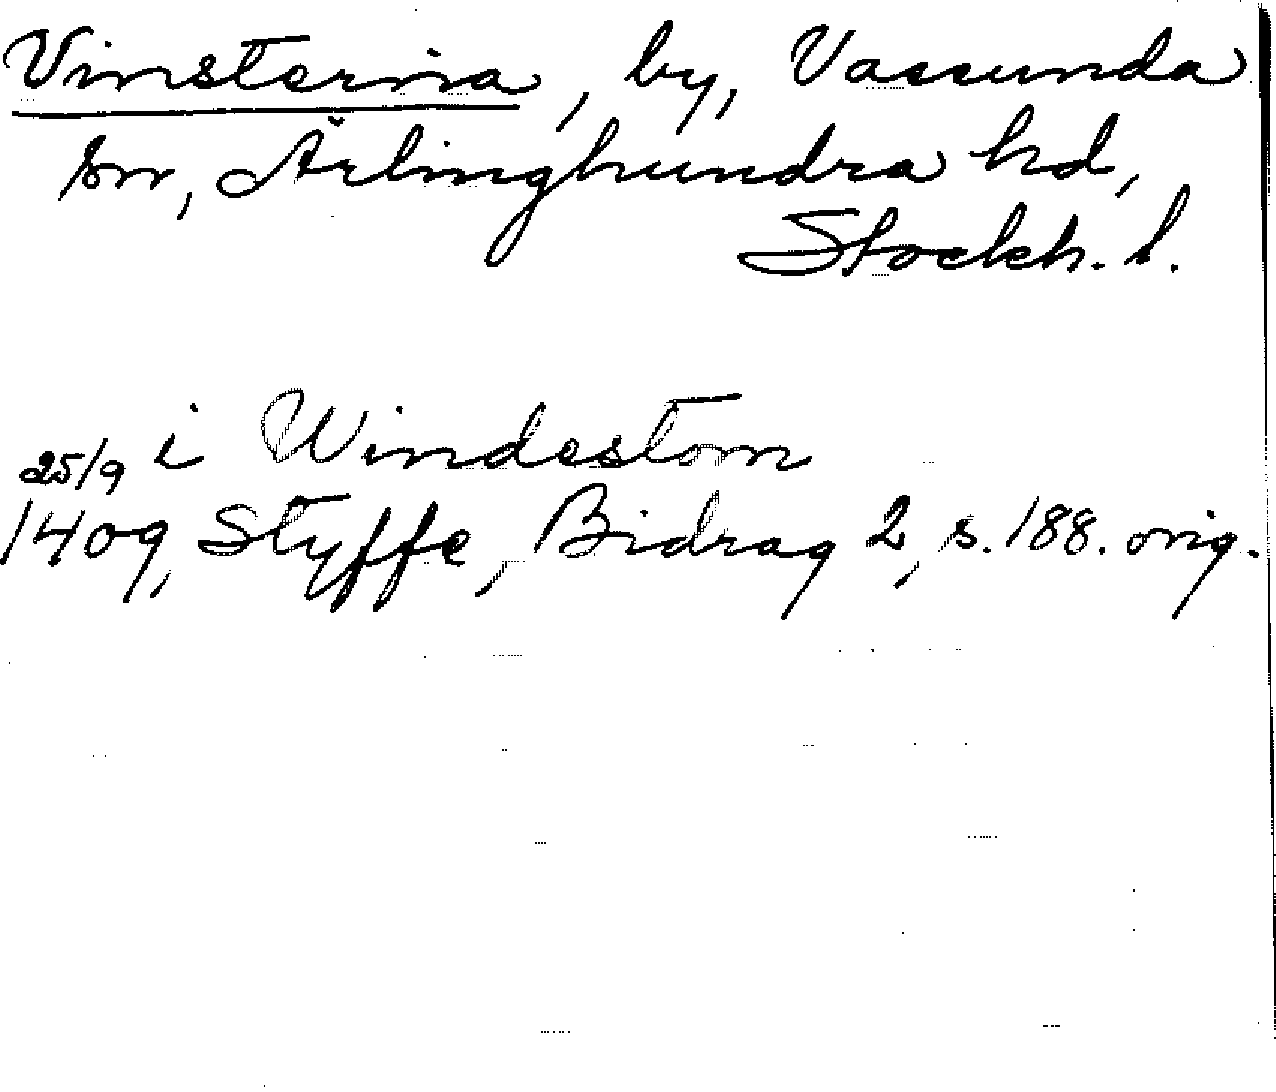 Vinsterna, by, Vassunda
sn, Ärlinghundra hd,
Stockh. l.
i Windestom
25/9
1409, Styffe, Bidrag 2, s. 188. orig.